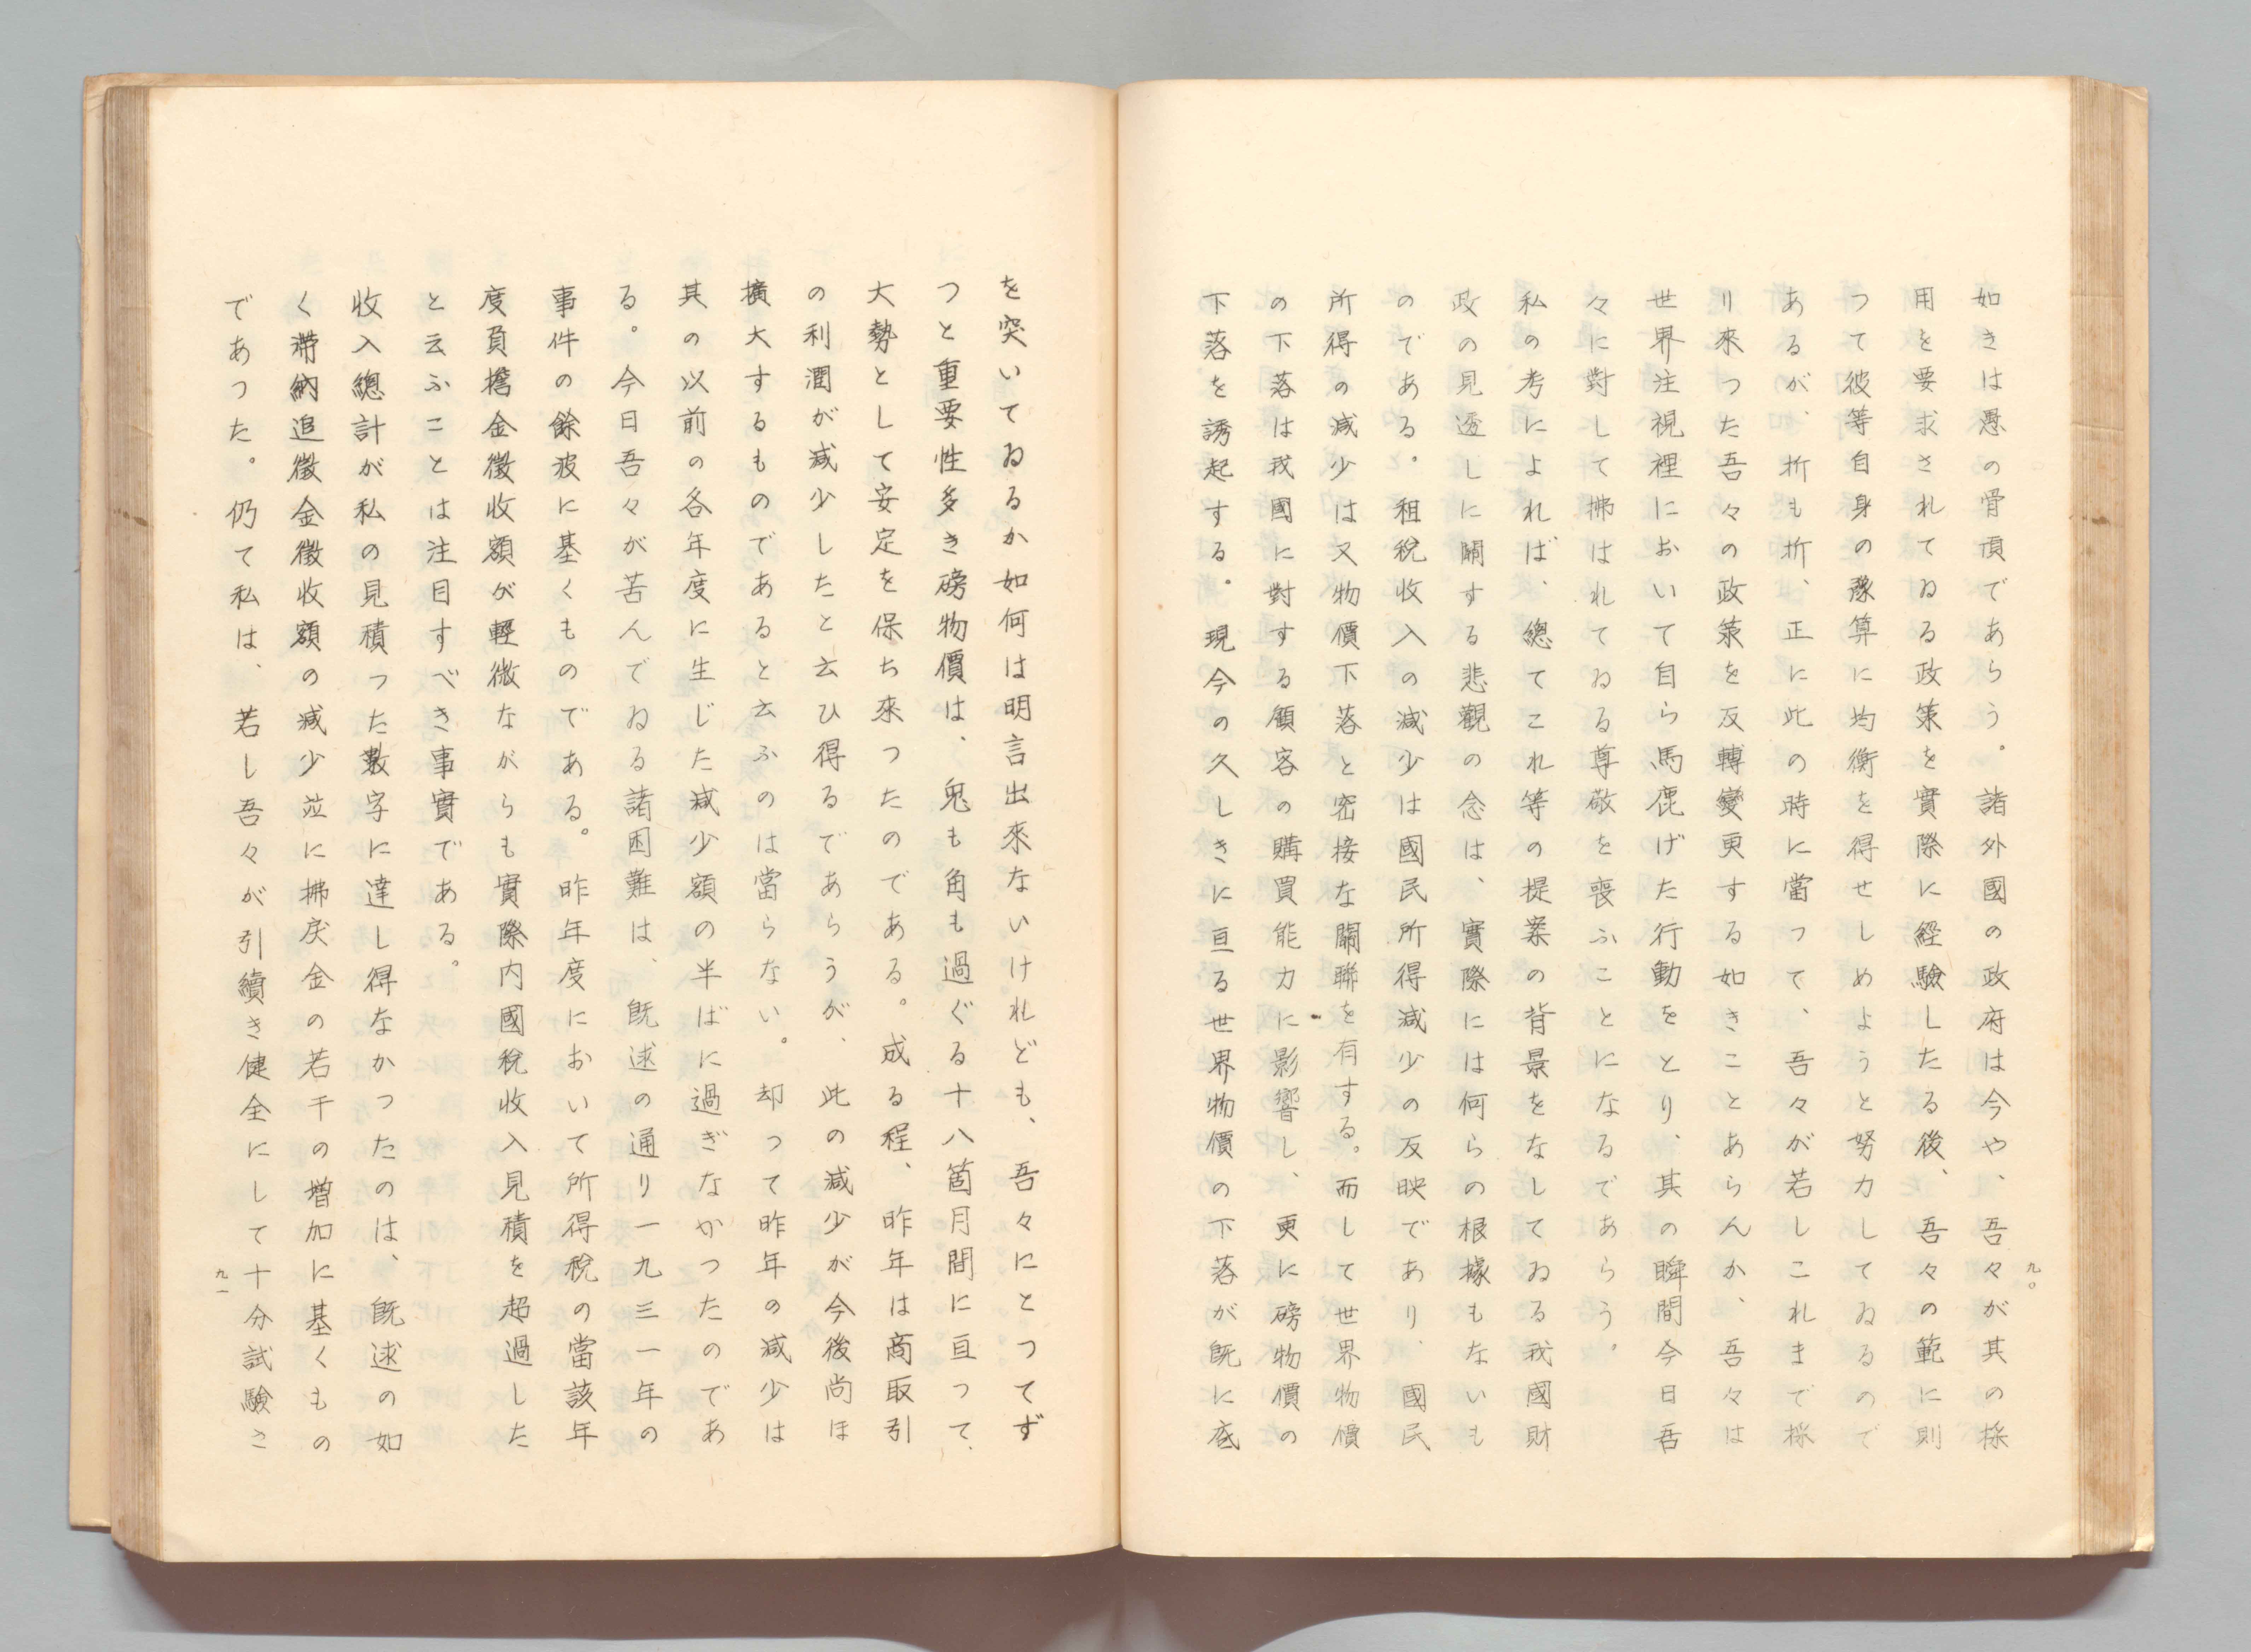 如きは愚の骨頂であらう。諸外國の政府は今や、吾々が其の採
用を要求されてゐる政策を實際に経驗したる後、吾々の範に則
つて彼等自身の豫算に均衡を得せしめようと努力してゐるので
あるが、折も折、正に此の時に當つて、吾々が若しこれまで採
り來つた吾々の政策を反轉變更する如きことあらんか、吾々は
世界注視裡において自ら馬鹿げた行動をとり、其の瞬間今日吾
々に對して拂はれてゐる尊敬を喪ふことになるであらう。
私の考によれば、總てこれ等の提案の背景をなしてゐる我國財
政の見透しに關する悲觀の念は、實際には何らの根據もないも
のである。租税收入の減少は國民所得減少の反映であり、國民
所得の減少は又物價下落と密接な關聯を有する。而して世界物價
の下落は我國に對する顧客の購買能力に影響し、更に磅物價の
下落を誘起する。現今の久しきに亘る世界物價の下落が既に底
九〇
を突いてゐるか如何は明言出來ないけれども、吾々にとつてず
つと重要性多き磅物價は、兎も角も過ぐる十八箇月間に亘つて、
大勢として安定を保ち來つたのである。成る程、昨年は商取引
の利潤が減少したと云ひ得るであらうが、此の減少が今後尚ほ
擴大するものであると云ふのは當らない。却つて昨年の減少は
其の以前の各年度に生じた減少額の半ばに過ぎなかつたのであ
る。今日吾々が苦んでゐる諸困難は、既述の通り一九三一年の
事件の餘波に基くものである。昨年度において所得税の當該年
度負擔金徴收額が輕微ながらも實際内國税收入見積を超過した
と云ふことは注目すべき事實である。
收入總計が私の見積つた數字に達し得なかつたのは、既述の如
く滯納追徴金徴收額の減少竝に拂戻金の若干の増加に基くもの
であつた。仍て私は、若し吾々が引續き健全にして十分試驗さ
九一